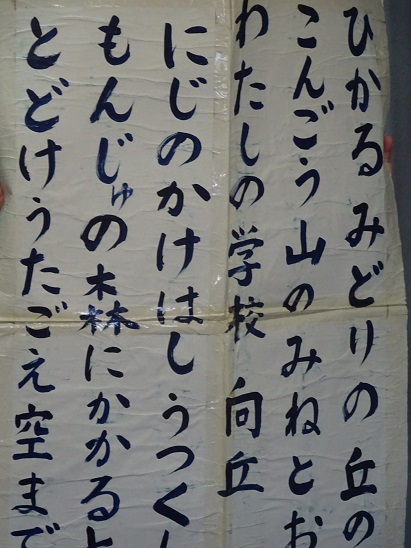 ひかるみどりの丘の
こんごう山のみねとお
わたしの学校 向丘
にじのかけはしうつくし
もんじゅの森にかかると
とどけうたごえ空まで